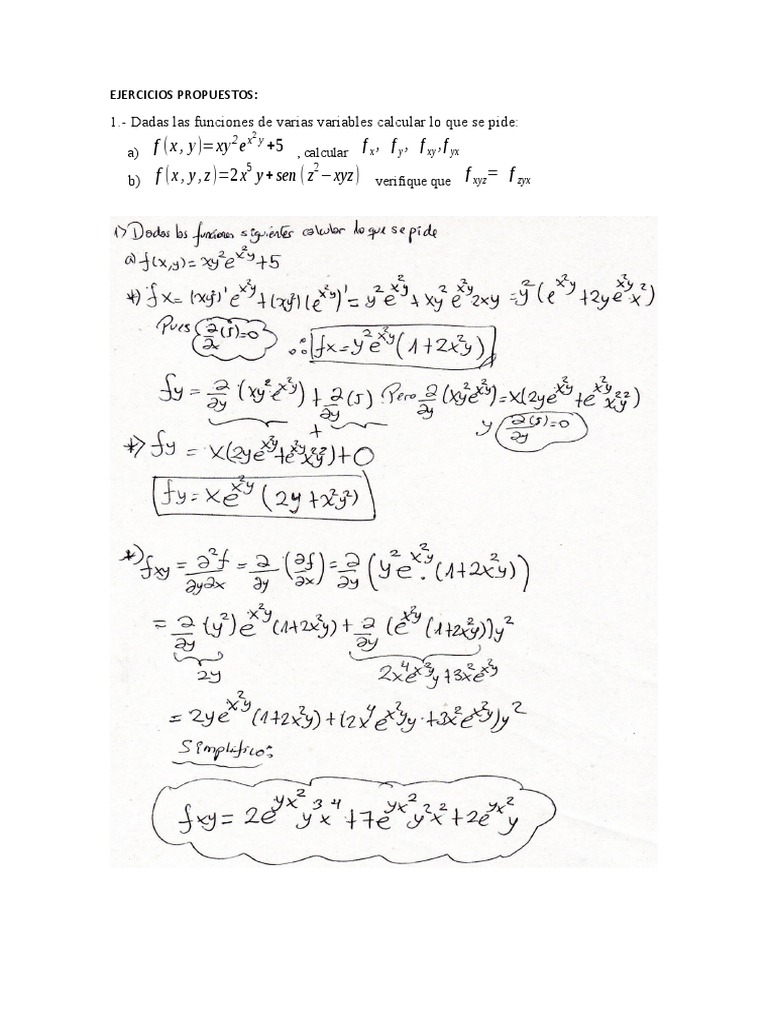 EJERCICIOS PROPUESTOS:
1.- Dadas las funciones de varias variables calcular lo que se pide:
a) f(x,y)=xy²e^{x²y}+5 , calcular f_x, f_y, f_xy, f_yx
b) f(x,y,z)=2x⁵y+sen(z²−xyz) verifique que f_xyz = f_zyx
1) Dadas las funciones siguientes calcular lo que se pide
a) f(x,y)=xy²e^{x²y}+5
*) fx=(xy²)'e^{x²y}+(xy²)(e^{x²y})'=y²e^{x²y}+xy²e^{x²y}2xy=y²(e^{x²y}+2ye^{x²y}x²)
Pues ∂/∂x(5)=0 ∴ fx=y²e^{x²y}(1+2x²y)
fy=∂/∂y(xy²·e^{x²y})+∂/∂y(5). Pero ∂/∂y(xy²e^{x²y})=x(2ye^{x²y}+e^{x²y}x²y²)
+ y ∂(5)/∂y=0
*) fy=x(2ye^{x²y}+e^{x²y}x²y²)+0
fy=xe^{x²y}(2y+x²y²)
*) fxy=∂²f/∂y∂x=∂/∂y(∂f/∂x)=∂/∂y(y²e^{x²y}·(1+2x²y))
=∂/∂y(y²)e^{x²y}(1+2x²y)+∂/∂y(e^{x²y}(1+2x²y))y²
2y 2x⁴e^{x²y}y+3x²e^{x²y}
=2ye^{x²y}(1+2x²y)+(2x⁴e^{x²y}y+3x²e^{x²y})y²
Simplifico:
fxy=2e^{yx²}y³x⁴+7e^{yx²}y²x²+2e^{yx²}y